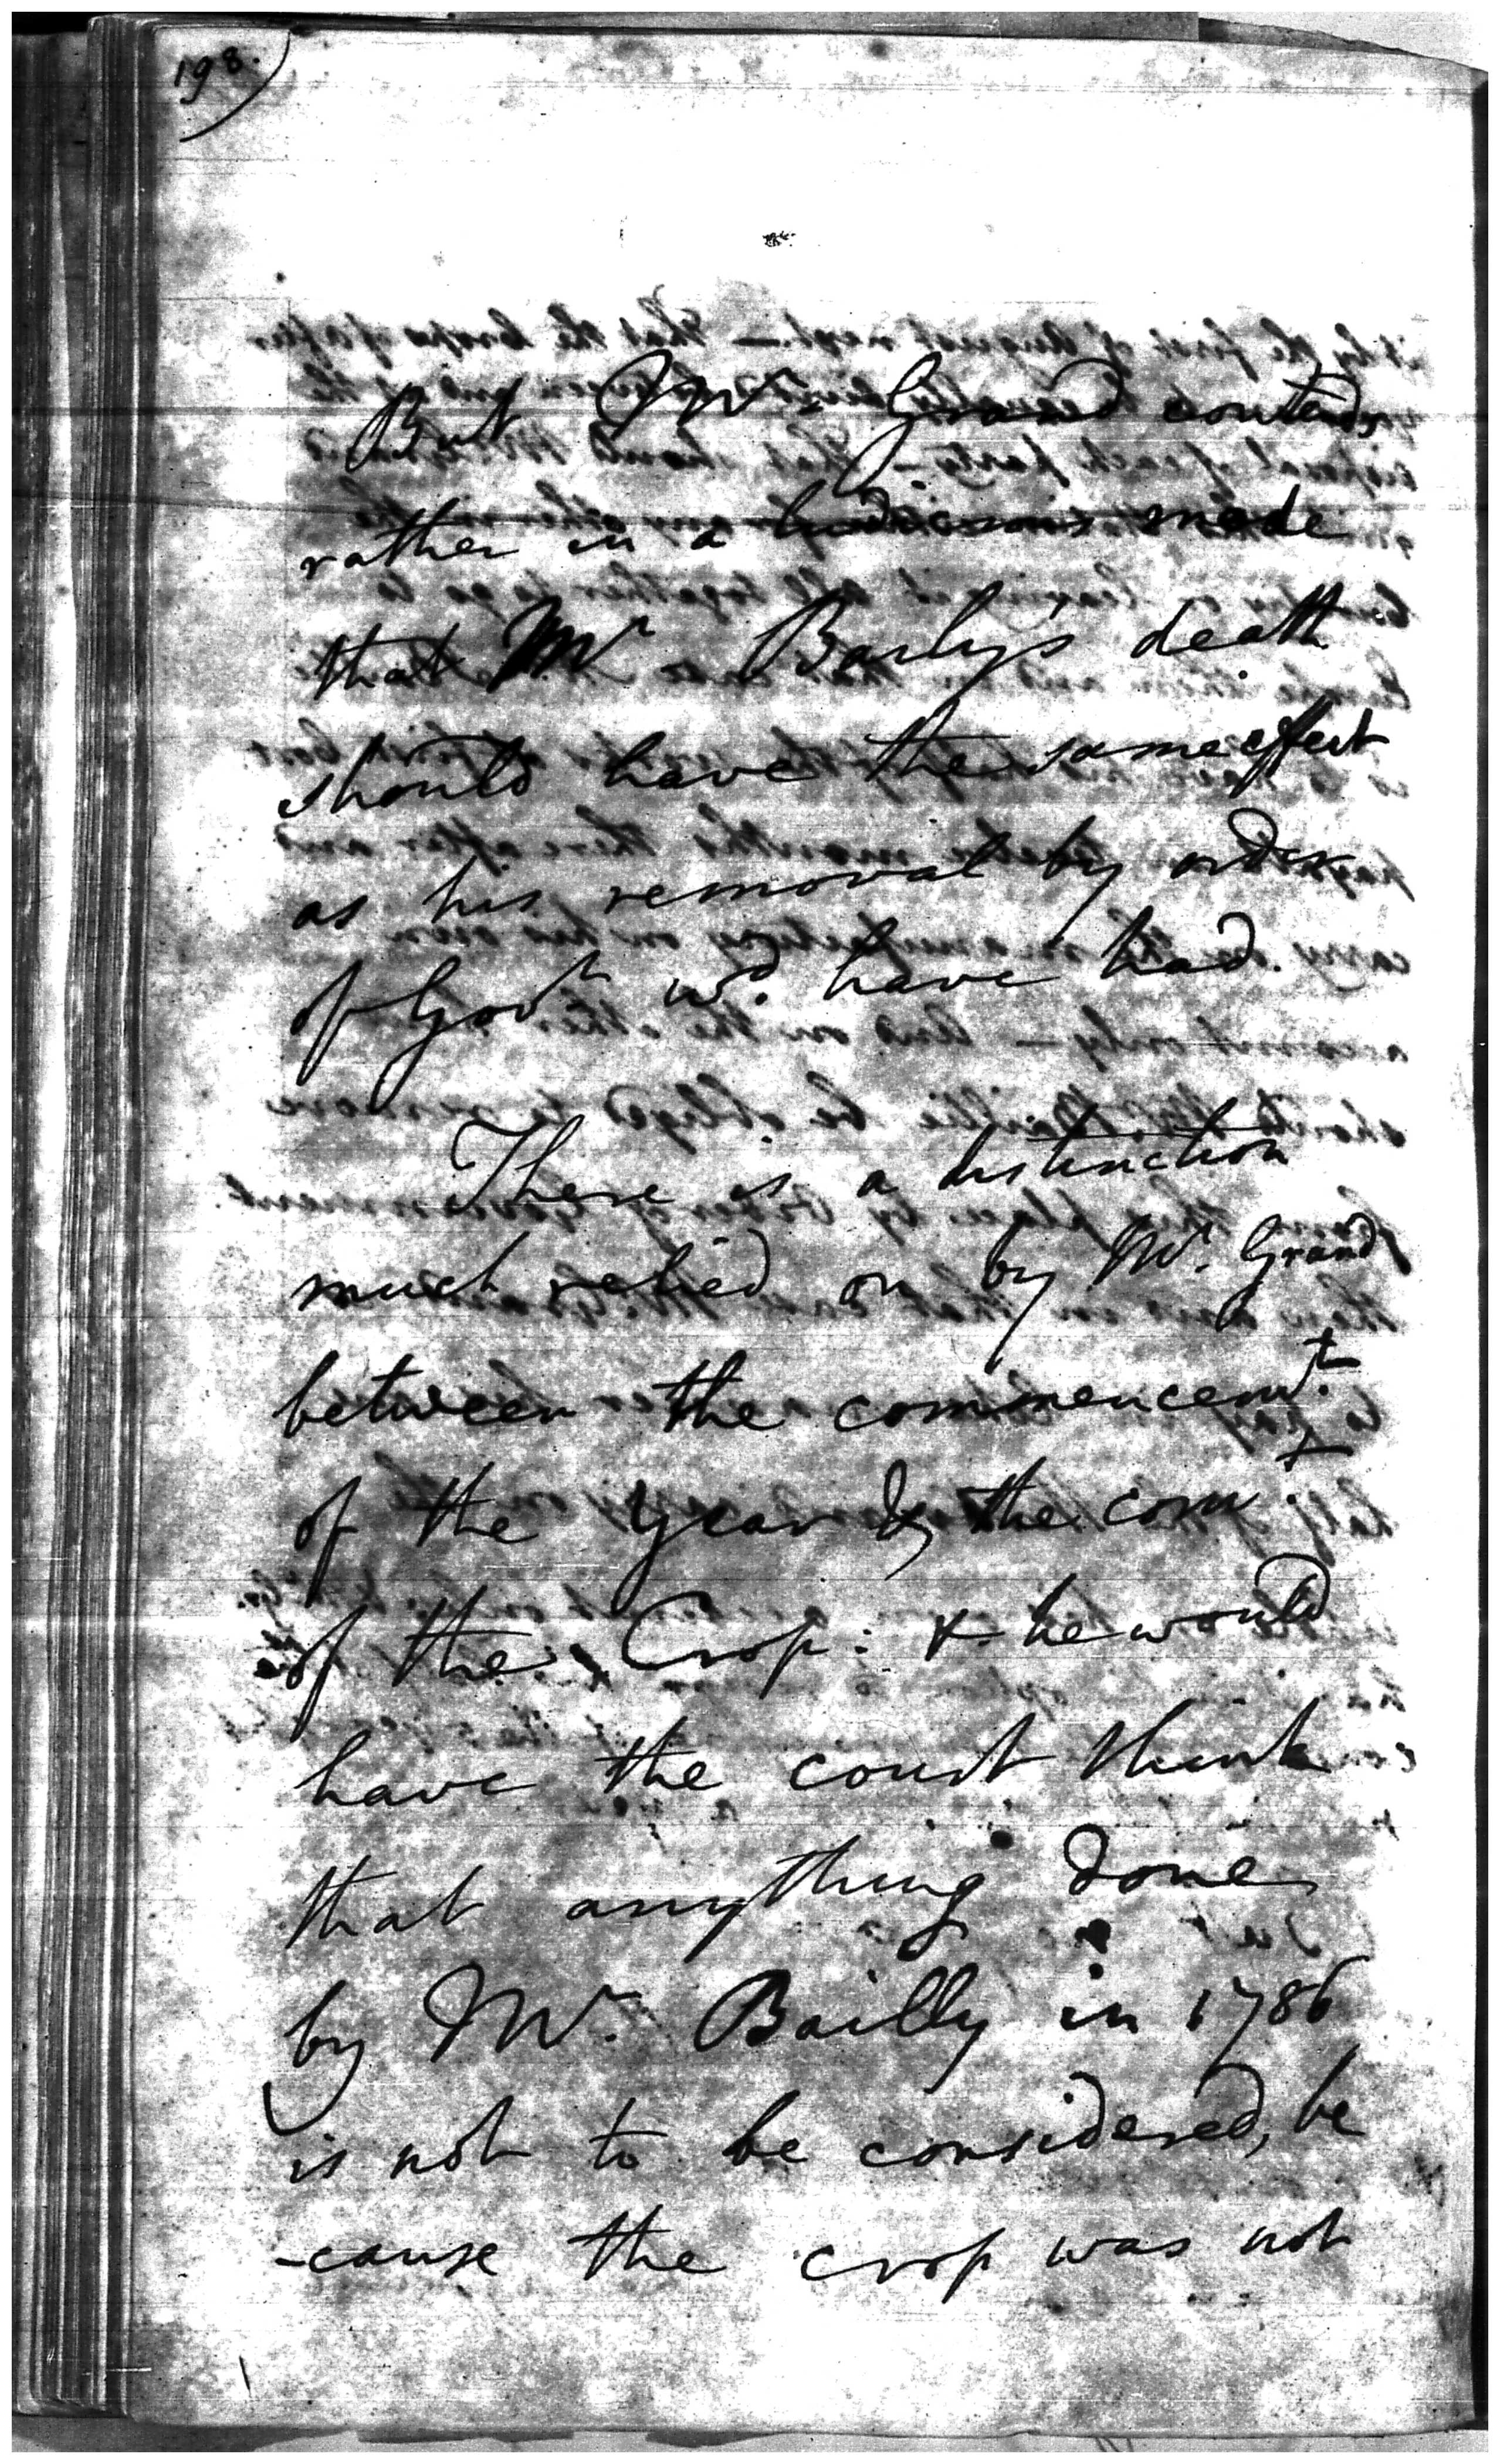 198.
But Mr. Grand contends
rather in a ludicrous mode
that Mr Baily's death
should have the same effect
as his removal by order
of Govt wd. have had.
There is a distinction
much relied on by Mr. Grand
between the commencemt.
of the Year & the comt.
of the Crop: & he would
have the court think
that anything done
by Mr. Bailly in 1786
is not to be considered, be
-cause the crop was not